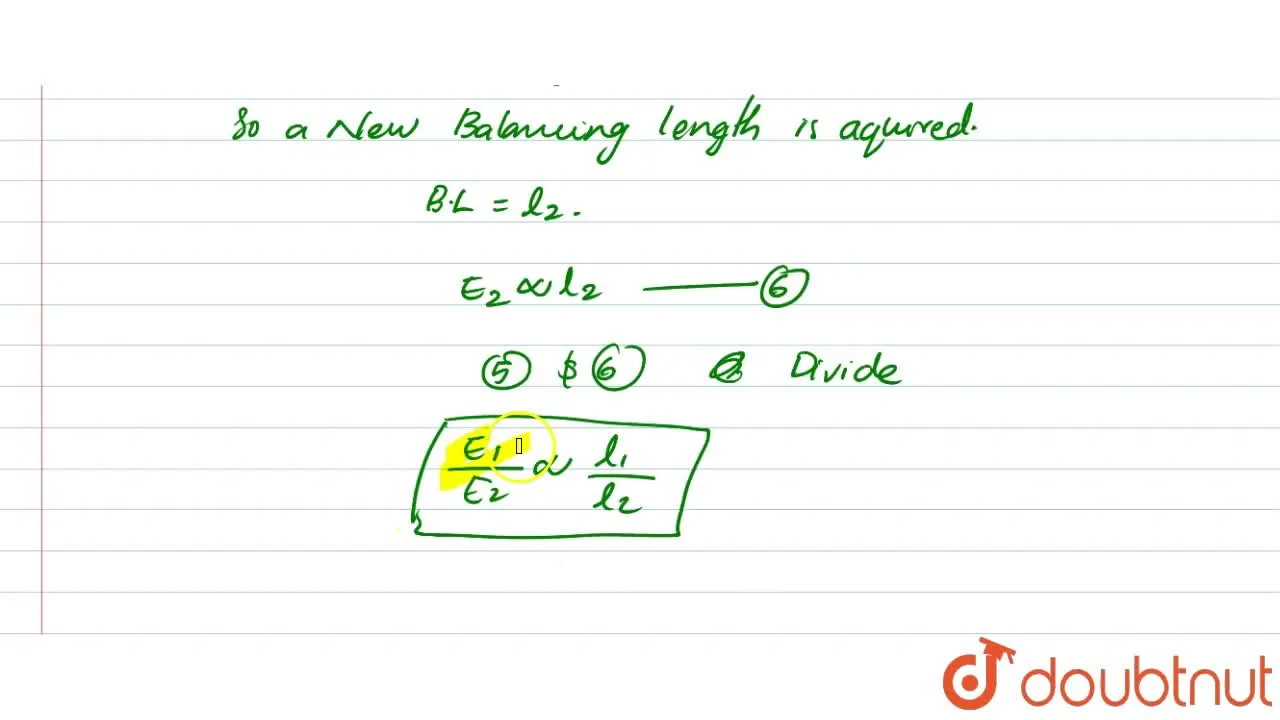 So a New Balancing length is aquired.
B.L = l₂.
E₂ ∝ l₂ —— ⑥
⑤ & ⑥ Divide
E₁/E₂ ∝ l₁/l₂
doubtnut